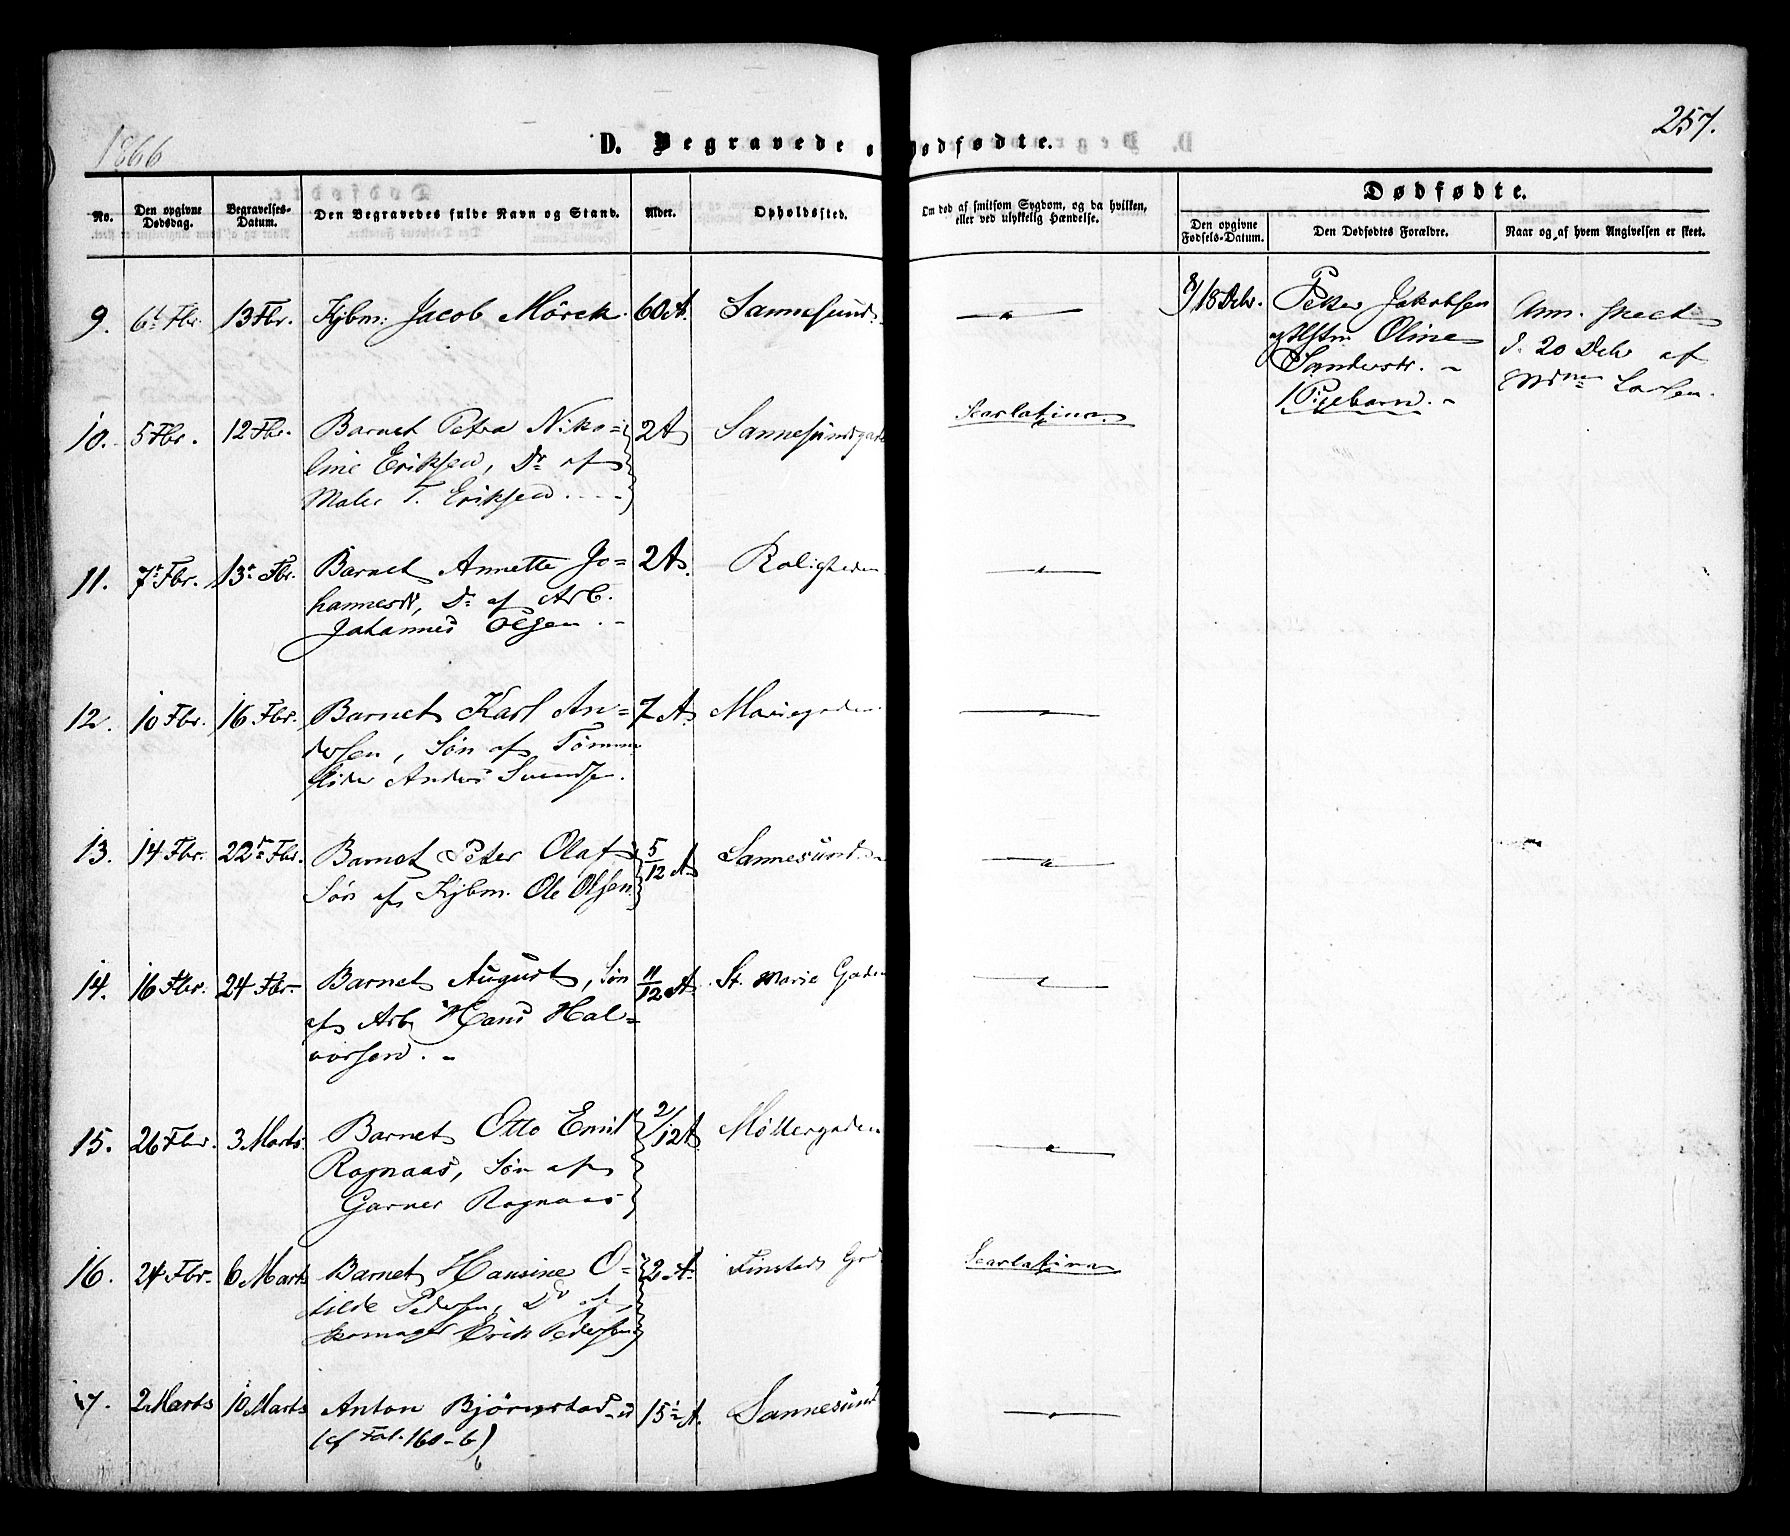 1866
257.
D. Begravede o
dødfødte.
Dødfødte.
No.
Den opgivne Dødsdag.
Begravelses-Datum.
Den Begravedes fulde Navn og Stand.
Alder.
Opholdssted.
Om død af smitsom Sygdom, og da hvilken, eller ved ulykkelig Hændelse.
Den opgivne Fødsels-Datum.
Den Dødfødtes Forældre.
Naar og af hvem Angivelsen er skeet.
9. 6t Fbr. 13 Fbr. Kjbm. Jacob Mörck. 60 A. Sannesund
18 Debr. Peter Jakobsen
Oline
Sanderstr.
1 Pigebarn.
Ann. skeet
d. 20 Debr af
Mdm Larsen.
10. 5 Fbr. 12 Fbr. Barnet Petra Niko=
line Eriksen, Dr af
Maler T. Eriksen
2 A Sannesundsgade
Scarlatina
11. 7t Fbr. 13t Fbr. Barnet Annette Jo=
hannesdr, Dr af Arb.
Johannes Olsen
2 A. Roligheden
12. 10 Fbr. 16 Fbr. Barnet Karl An=
dersen, Søn af Tömm
Anders Svendsen.
7 A. Mariegaden
13. 14 Fbr. 22d Fbr. Barnet Peter Olaf
Søn af Kjbm. Ole Olsen
5/12 A. Sannesund
14. 16 Fbr. 24 Fbr. Barnet August, Søn
af Arb Hans Hal=
vorsen.
11/12 A. St. Marie Gaden
15. 26 Fbr. 3 Marts. Barnet Otto Emil
Rognaas, Søn af
Garver Rognaas
2/12 A Möllergaden
16. 24 Fbr. 6 Marts Barnet Hansine O=
tilde Pedersen, Dr af
Skomager Erik Pedersen
2 A.
Scarlatina
17. 2 Marts 10 Marts Anton Björnstad
(cf Fol. 160-b)
15 A. Sannesund